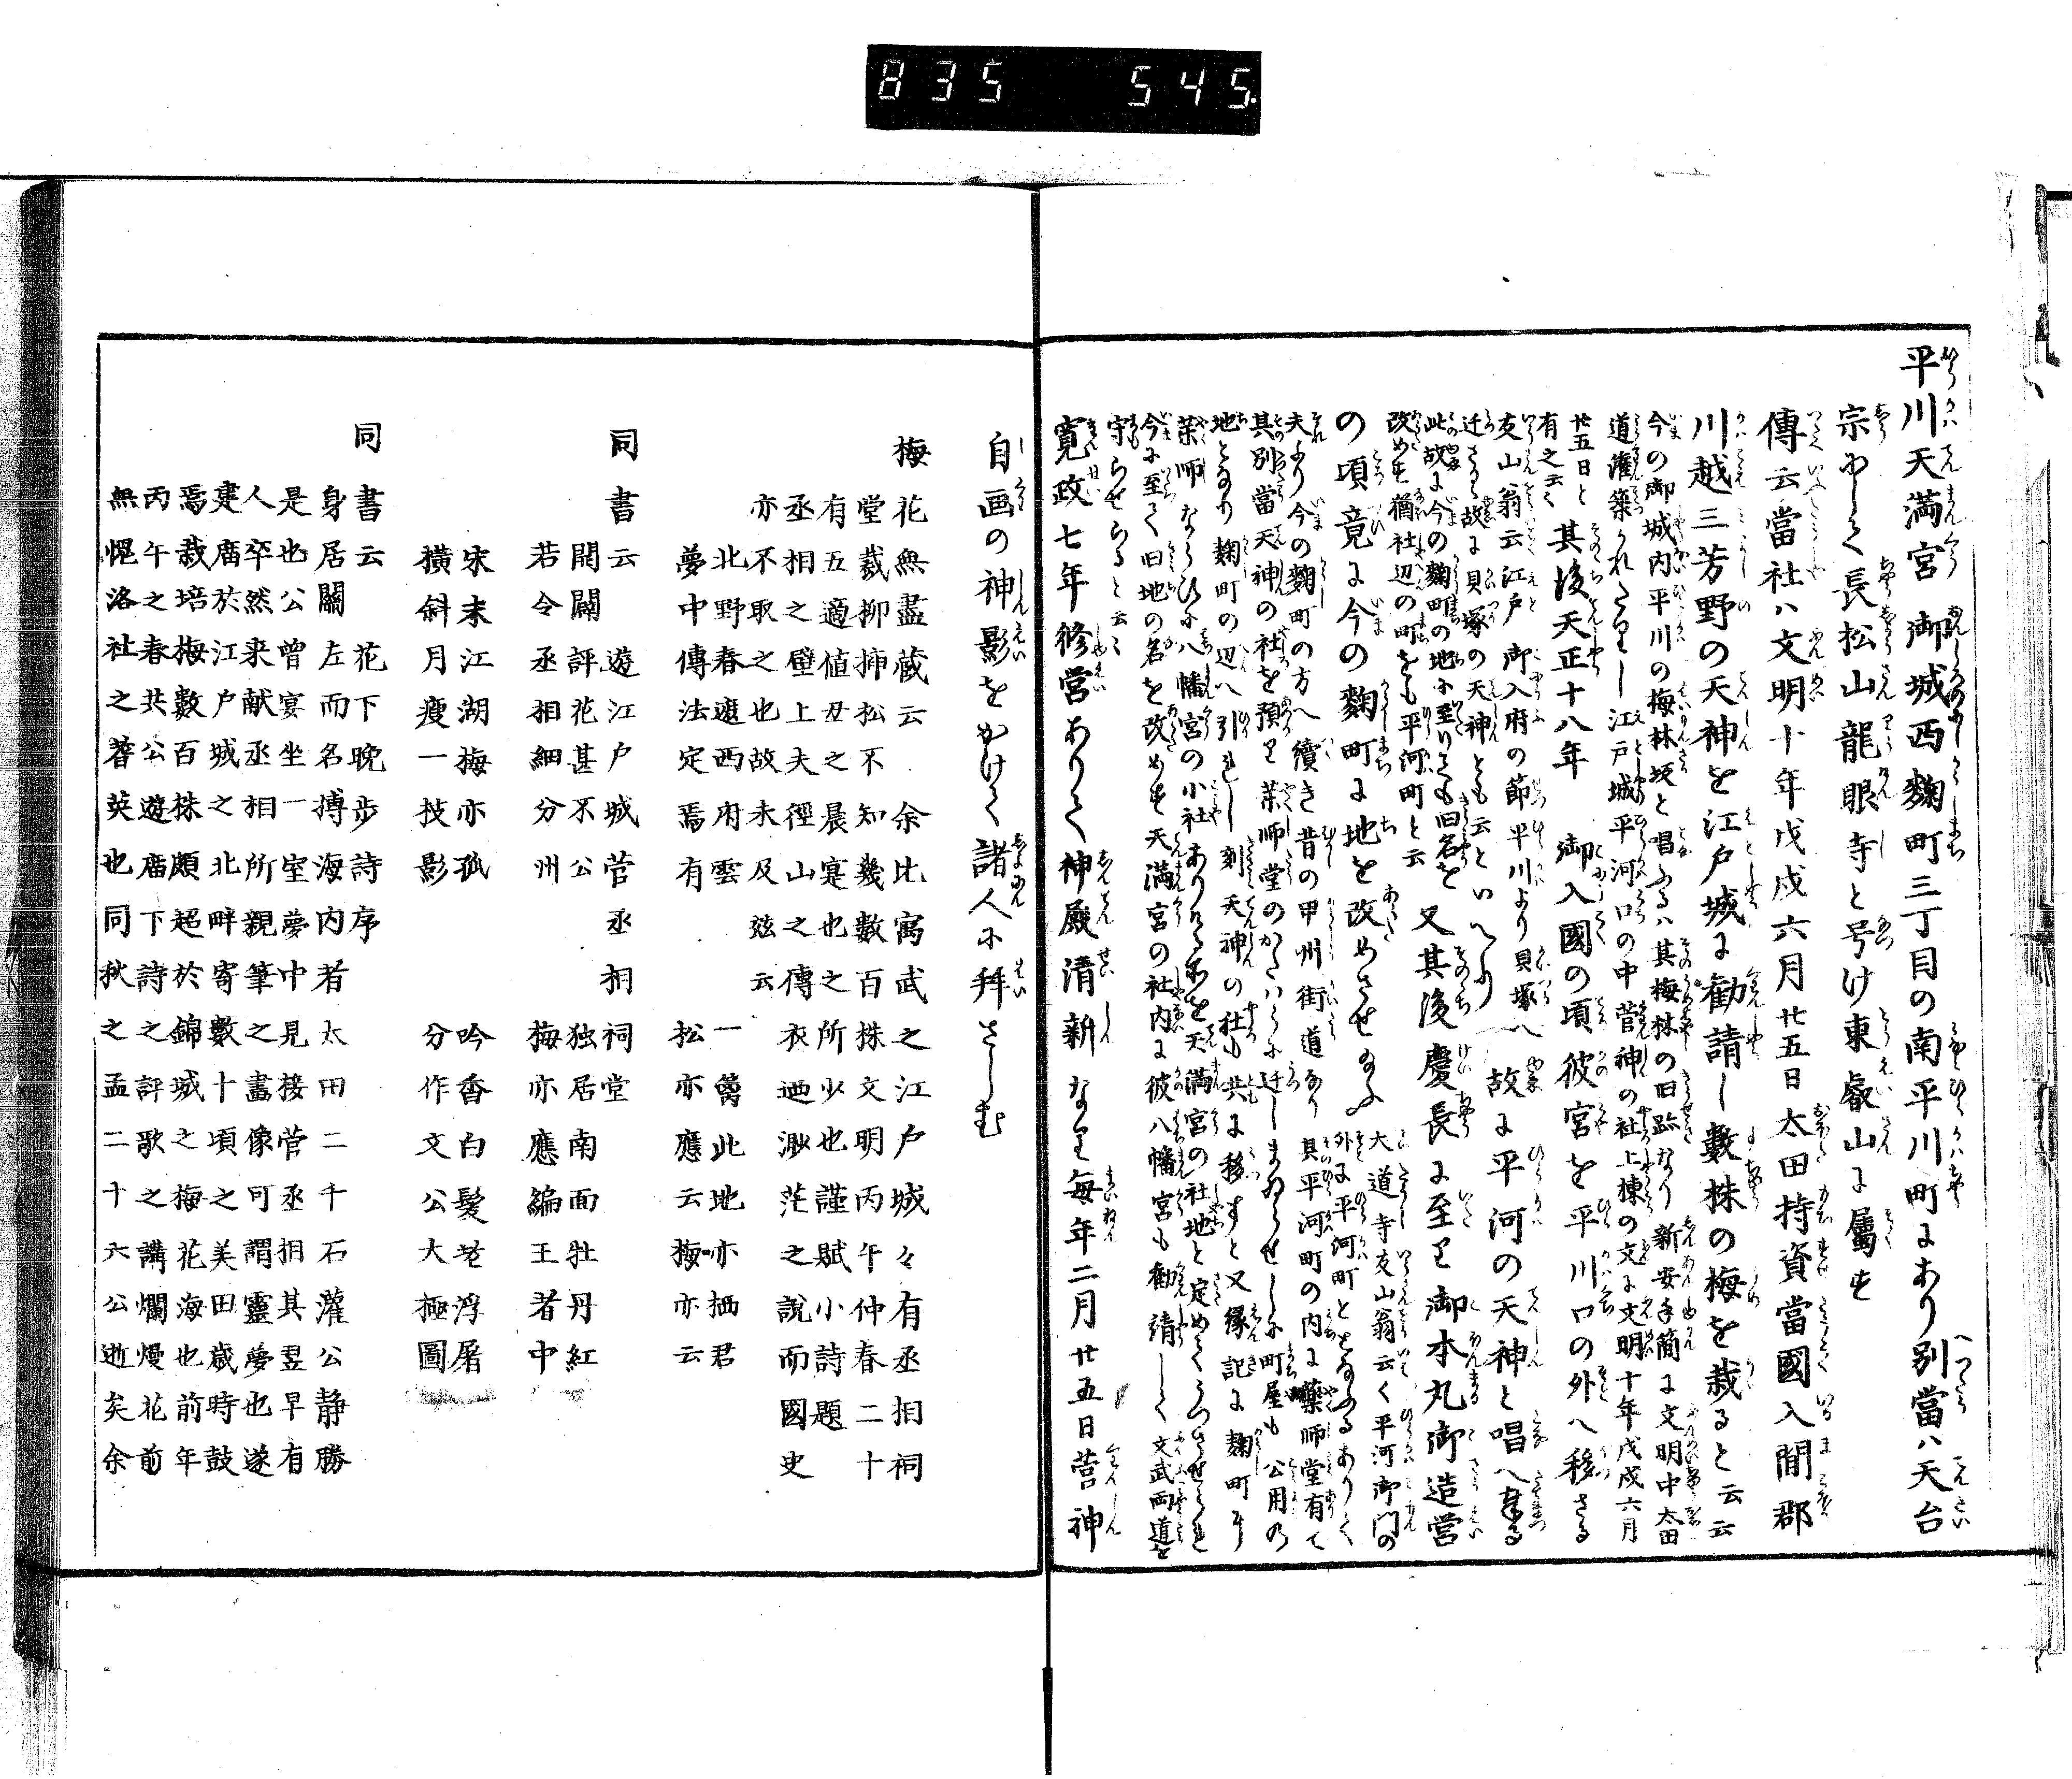 835 545
平川天満宮 御城西麹町三丁目の南平川町にあり別當ハ天台
宗にして長松山龍眼寺と号け東叡山に属せり
傳云當社ハ文明十年戊戌六月廿五日太田持資當國入間郡
川越三芳野の天神を江戸城に勧請し數株の梅を栽ると云云
今の御城内平川の梅林坂と唱ふるハ其梅林の旧跡なり新安手簡に文明中太田
道灌築かれたりし江戸城平河口の中菅神の社上棟の文に文明十年戊戌六月
廿五日と有之云々
其後天正十八年 御入國の頃彼宮を平川口の外へ移さる
友山翁云江戸 御入府の節平川より貝塚へ
迁さる故に貝塚の天神とも云といへり
故に平河の天神と唱へ奉る
此故に今の麹町の地に至りても旧名を
改めず猶社辺の町をも平河町と云
又其後慶長に至り御本丸御造営
の頃竟に今の麹町に地を改めさせ給ふ
大道寺友山翁云く平河御門の
外に平河町とあるありて
夫より今の麹町の方へ續き昔の甲州街道なり其平河町の内に藥師堂有て
其別當天神の社を預り藥師堂のかたハらに迁しまゐらせしに町屋も公用の
地となり麹町の辺へ引れし刻天神の社も共に移すと又縁記に麹町に
藥師ならびに八幡宮の小社ありける所を天満宮の社地と定めてうつさせられ
今に至て旧地の名を改めず天満宮の社内に彼八幡宮も勧請して文武両道を
守らせらると云云
寛政七年修営ありて神殿清新なり毎年二月廿五日菅神
自画の神影をかけて諸人に拜さしむ
梅花無盡蔵云 余比寓武之江戸城々有丞相祠
堂栽柳挿松不知幾數百株文明丙午仲春二十
有五適値丑之晨寔也之所少也謹賦小詩題
丞相之壁上夫徑山之傳衣迺渺茫之說而國史
亦不取之也故未及玆云
北野春遊西府雲 一夢此地亦栖君
夢中傳法定焉有 松亦應云梅亦云
同書云 遊江戸城菅丞相祠堂
開闢評花甚不公 独居南面牡丹紅
若令丞相細分州 梅亦應編王者中
宋末江湖梅亦孤 吟香白髮老浮屠
横斜月瘦一枝影 分作文公大極圖
同書云 花下晩歩詩序
身居關左而名搏海内者太田二千石灌公静勝
是也公曽宴坐一室夢中見接菅丞相其翌早有
人卒然来献丞相所親筆之畫像可謂靈夢也遂
建廟於江戸城之北畔寄數十頃之美田歳時鼓
焉栽培梅數百株頗超於錦城之梅花海也前年
丙午之春共公遊廟下詩之評歌之講爛熳花前
無愧洛社之耆英也同秋之孟二十六公逝矣余